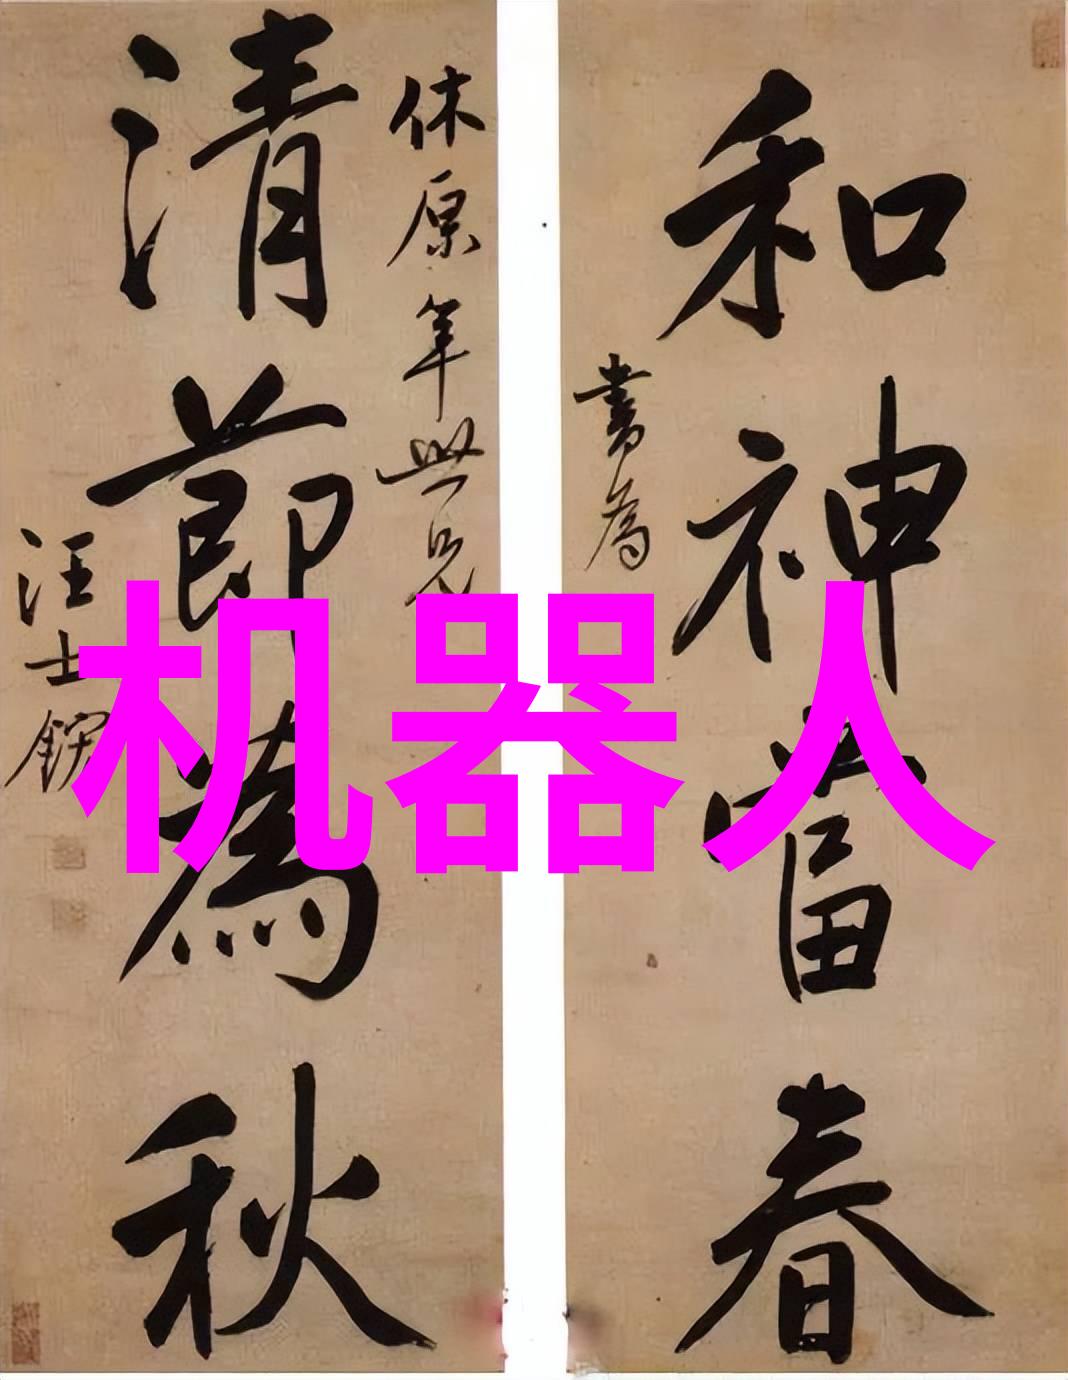 和神當春
書為
休原年世兄
清莭為秋
汪士鋐
机器人